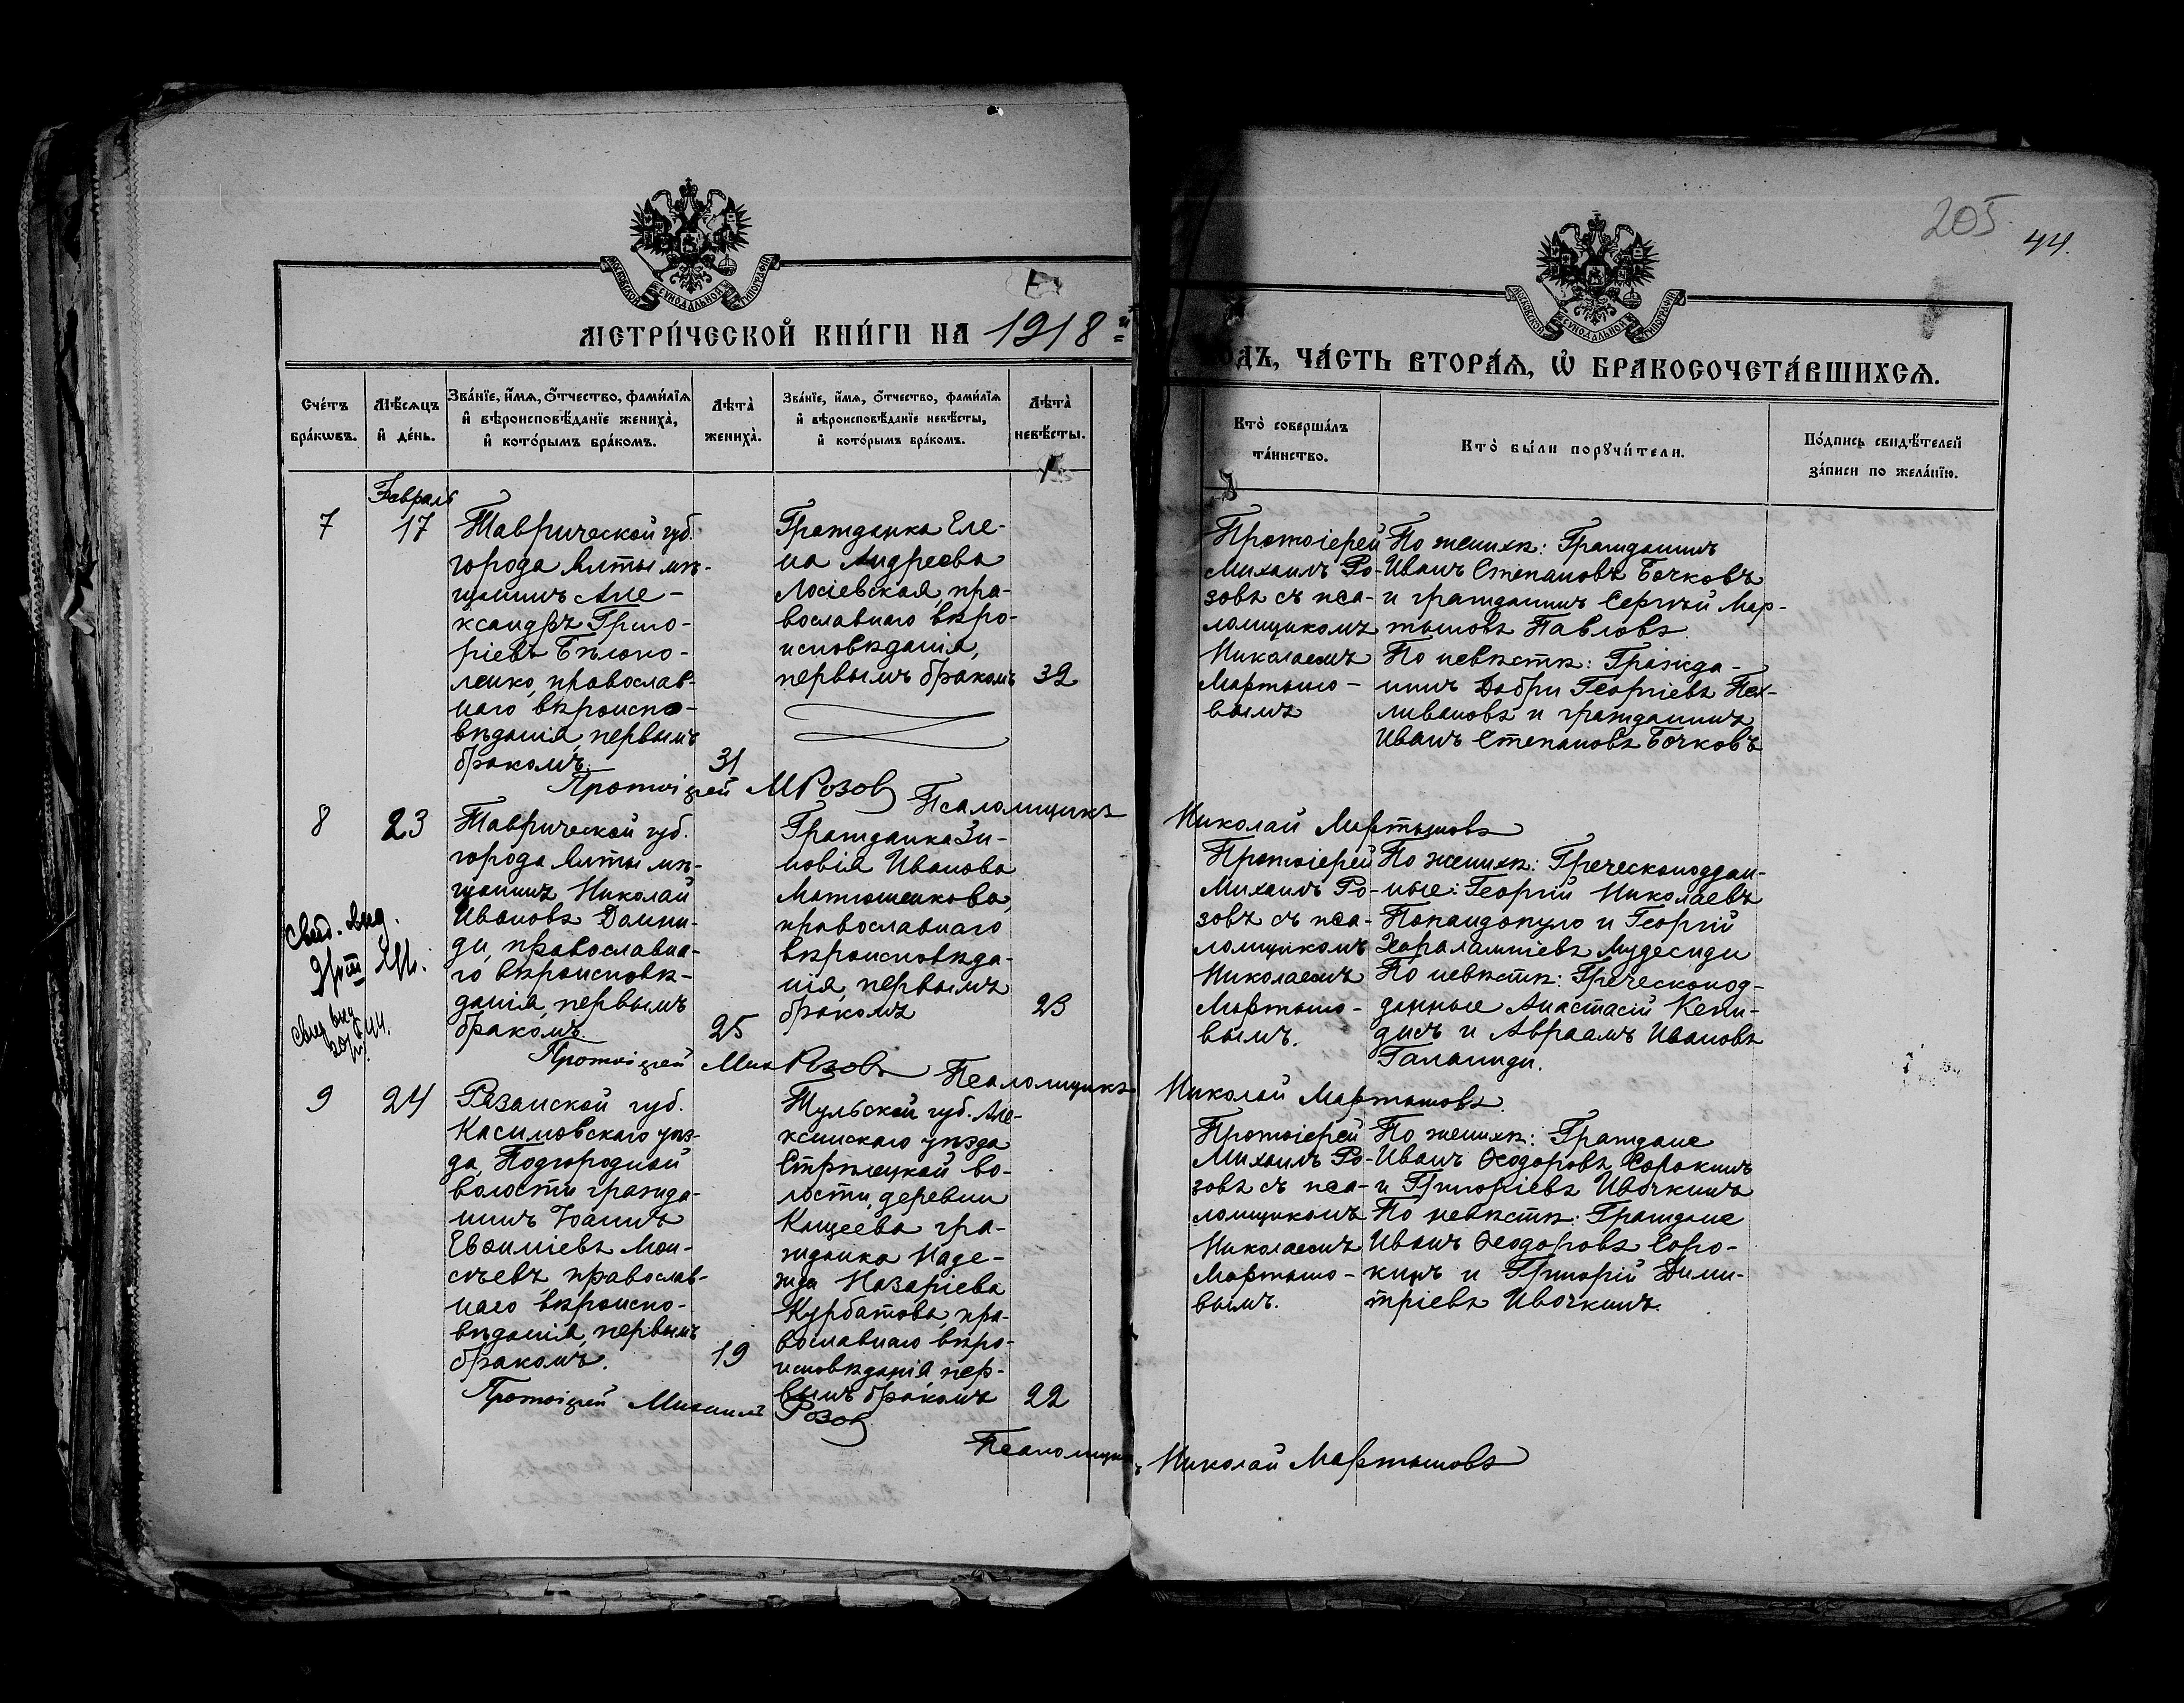 205
44.
МОСКОВСКОЙ СУНОДАЛЬНОЙ ТИПОГРАФІИ
МЕТРИ́ЧЕСКОЙ КНИ́ГИ НА 1918 й
МОСКОВСКОЙ СУНОДАЛЬНОЙ ТИПОГРАФІИ
ОДЪ, ЧА́СТЬ ВТОРА́Ѧ, Ѡ҆ БРАКОСОЧЕТА́ВШИХСѦ.
Сче́тъ
бра́кѡвъ.
Мѣ́сѧцъ
и҆ де́нь.
Зва́нїе, и҆́мѧ, о҆́тчество, фами́лїѧ
и҆ вѣроисповѣ́данїе жениха̀,
и҆ кото́рымъ бра́комъ.
Лѣта̀
жениха̀.
Зва́нїе, и҆́мѧ, о҆́тчество, фами́лїѧ
и҆ вѣроисповѣ́данїе невѣ́сты,
и҆ кото́рымъ бра́комъ.
Лѣта̀
невѣ́сты.
Кто̀ соверша́лъ
та́инство.
Кто̀ бы́ли порꙋчи́тели.
По́дпись свидѣ́телей
за́писи по жела́нїю.
Февраль
7
17
Таврической губ.
города Ялты мѣ-
щанинъ Але-
ксандръ Григо-
ріевъ Бѣлоко-
ленко, православ-
наго вѣроиспо-
вѣданія, первымъ
бракомъ.
31
Гражданка Еле-
на Андреева
Лосіевская, пра-
вославнаго вѣро-
исповѣданія,
первымъ бракомъ
32
Протоіерей
Михаилъ Ро-
зовъ съ пса-
ломщикомъ
Николаемъ
Мартыно-
вымъ
По женихѣ: Гражданинъ
Иванъ Степановъ Бочковъ
и гражданинъ Сергѣй Мар-
тыновъ Павловъ.
По невѣстѣ: Гражда-
нинъ Добри Георгіевъ Пех-
ливановъ и гражданинъ
Иванъ Степановъ Бочковъ
Протоіерей М Розов Псаломщикъ Николай Мартыновъ
8
23
Таврической губ.
города Ялты мѣ-
щанинъ Николай
Ивановъ Даини-
ди, православна-
го вѣроисповѣ-
данія, первымъ
бракомъ.
25
Гражданка Зи-
новія Иванова
Матюшенкова,
православнаго
вѣроисповѣда-
нія, первымъ
бракомъ
23
Протоіерей
Михаилъ Ро-
зовъ съ пса-
ломщикомъ
Николаемъ
Мартыно-
вымъ.
По женихѣ: Греческоподдан-
ные: Георгій Николаевъ
Попандопуло и Георгій
Харалампіевъ Мудесиди
По невѣстѣ: Греческопод-
данные Анастасій Кепи-
дисъ и Авраамъ Ивановъ
Галаниди.
Протоіерей Мих Розовъ Псаломщикъ Николай Мартыновъ.
9
24
Рязанской губ.
Касимовскаго уѣз-
да, Подгородной
волости гражда-
нинъ Іоаннъ
Евѳиміевъ Мои-
сѣевъ, православ-
наго вѣроиспо-
вѣданія, первымъ
бракомъ.
19
Тульской губ. Але-
ксинскаго уѣзда
Стрѣлецкой во-
лости, деревни
Кащеева гра-
жданка Наде-
жда Назаріева
Курбатова, пра-
вославнаго вѣро-
исповѣданія, пер-
вымъ бракомъ
22
Протоіерей
Михаилъ Ро-
зовъ съ пса-
ломщикомъ
Николаемъ
Мартыно-
вымъ.
По женихѣ: Граждане
Иванъ Ѳеодоровъ Сорокинъ
и Григоріевъ Ивочкинъ
По невѣстѣ: Граждане
Иванъ Ѳеодоровъ Соро-
кинъ и Григорій Дими-
тріевъ Ивочкинъ.
Протоіерей Михаилъ Розов
Псаломщикъ Николай Мартыновъ